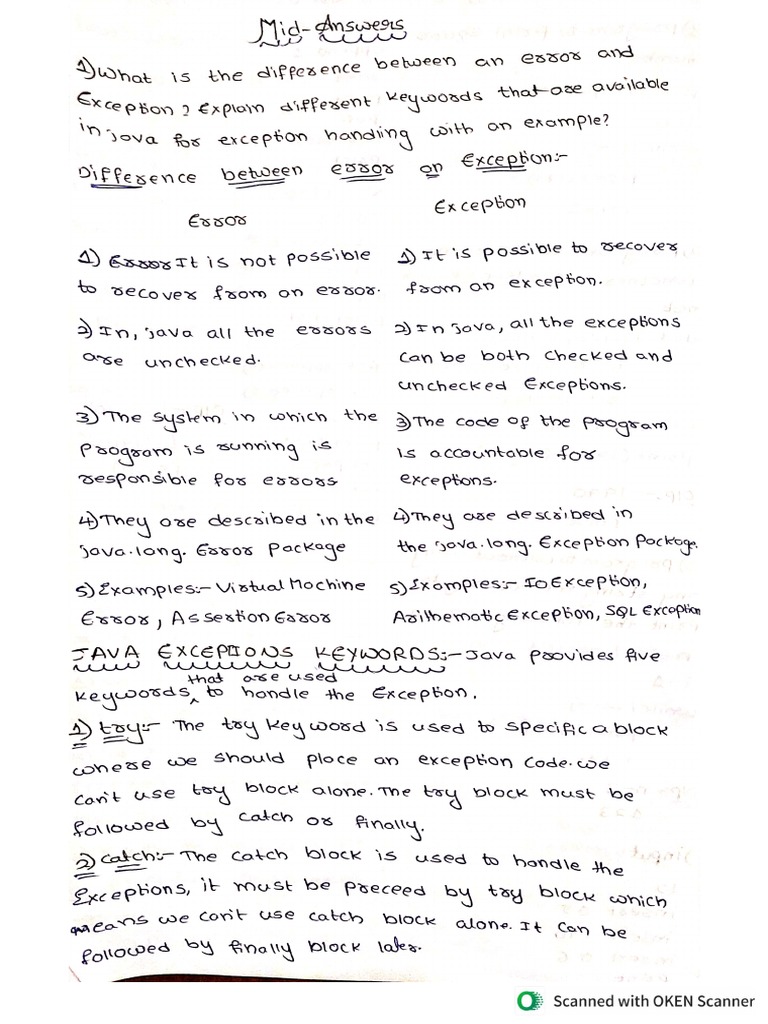 Mid-Answers
1) What is the difference between an error and
Exception? Explain different keywords that are available
in java for exception handling with an example?
Difference between error on Exception:-
Error
Exception
1) It is not possible
to recover from an error.
1) It is possible to recover
from an exception.
2) In, java all the errors
are unchecked.
2) In java, all the exceptions
can be both checked and
unchecked Exceptions.
3) The system in which the
program is running is
responsible for errors
3) The code of the program
is accountable for
exceptions.
4) They are described in the
java.lang. Error Package
4) They are described in
the java.lang. Exception Package.
5) Examples:- Virtual Machine
Error, Assertion Error
5) Examples:- IoException,
Arithematic Exception, SQL Exception
JAVA EXCEPTIONS KEYWORDS:- Java provides five
keywords that are used to handle the Exception.
1) try:- The try keyword is used to specific a block
where we should place an exception code. we
can't use try block alone. The try block must be
followed by catch or finally.
2) catch:- The catch block is used to handle the
Exceptions, it must be preceed by try block which
means we can't use catch block alone. It can be
followed by finally block later.
Scanned with OKEN Scanner